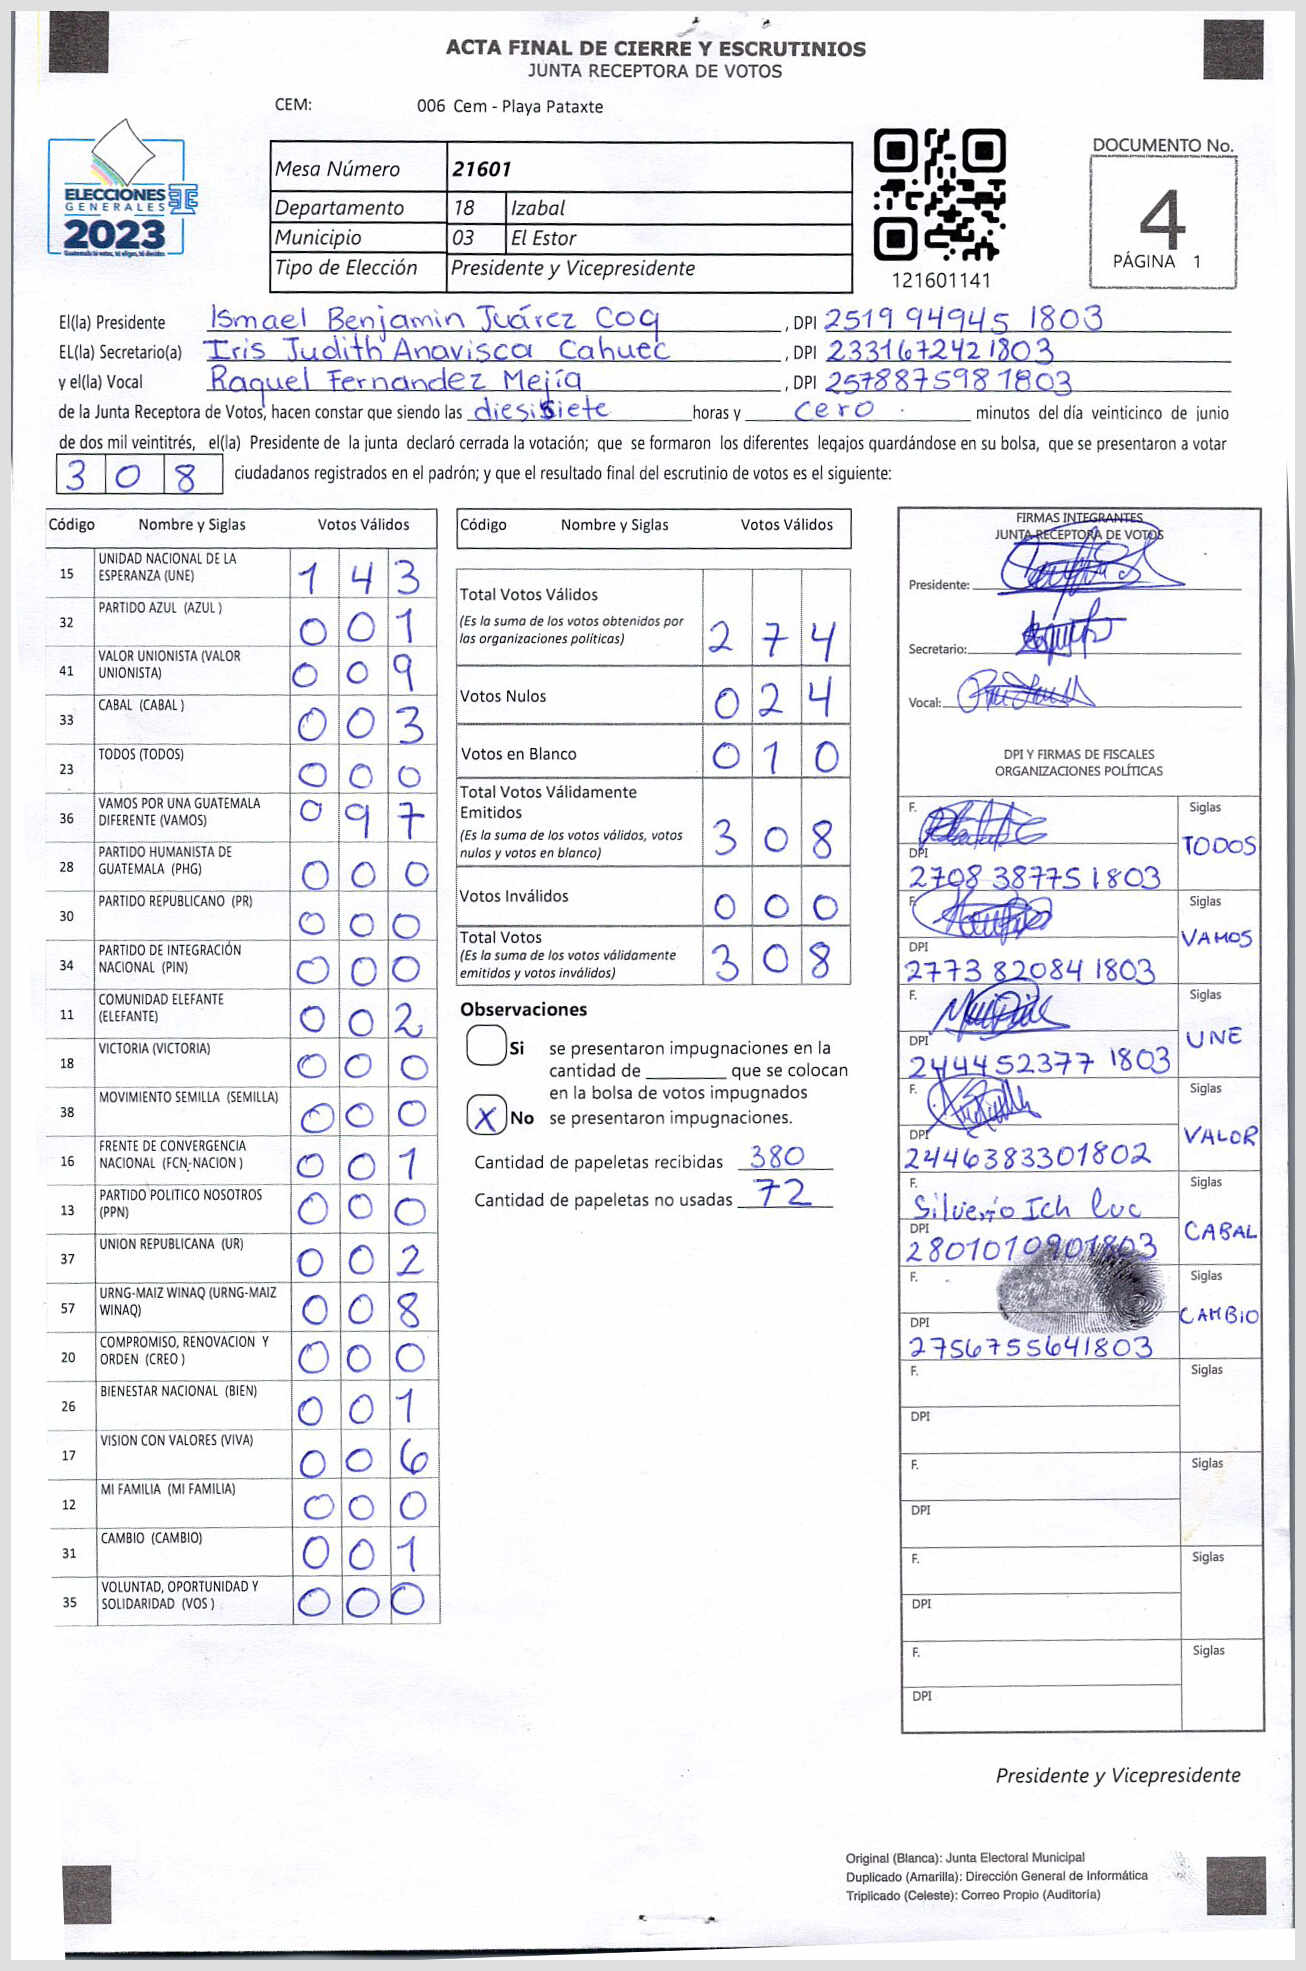 ACTA FINAL DE CIERRE Y ESCRUTINIOS
JUNTA RECEPTORA DE VOTOS
CEM: 006 Cem - Playa Pataxte
ELECCIONES
GENERALES
2023
Mesa Número 21601
Departamento 18 Izabal
Municipio 03 El Estor
Tipo de Elección Presidente y Vicepresidente
121601141
DOCUMENTO No.
4
PÁGINA 1
El(la) Presidente Ismael Benjamin Juárez Coq, DPI 2519 94945 1803
EL(la) Secretario(a) Iris Judith Anavisca Cahuec, DPI 2331672421803
y el(la) Vocal Raquel Fernandez Mejía, DPI 2578875981803
de la Junta Receptora de Votos, hacen constar que siendo las diesisiete horas y cero minutos del día veinticinco de junio
de dos mil veintitrés, el(la) Presidente de la junta declaró cerrada la votación; que se formaron los diferentes legajos guardándose en su bolsa, que se presentaron a votar
308 ciudadanos registrados en el padrón; y que el resultado final del escrutinio de votos es el siguiente:
Código Nombre y Siglas Votos Válidos
15 UNIDAD NACIONAL DE LA ESPERANZA (UNE) 143
32 PARTIDO AZUL (AZUL ) 001
41 VALOR UNIONISTA (VALOR UNIONISTA) 009
33 CABAL (CABAL ) 003
23 TODOS (TODOS) 000
36 VAMOS POR UNA GUATEMALA DIFERENTE (VAMOS) 097
28 PARTIDO HUMANISTA DE GUATEMALA (PHG) 000
30 PARTIDO REPUBLICANO (PR) 000
34 PARTIDO DE INTEGRACIÓN NACIONAL (PIN) 000
11 COMUNIDAD ELEFANTE (ELEFANTE) 002
18 VICTORIA (VICTORIA) 000
38 MOVIMIENTO SEMILLA (SEMILLA) 000
16 FRENTE DE CONVERGENCIA NACIONAL (FCN-NACION ) 001
13 PARTIDO POLITICO NOSOTROS (PPN) 000
37 UNION REPUBLICANA (UR) 002
57 URNG-MAIZ WINAQ (URNG-MAIZ WINAQ) 008
20 COMPROMISO, RENOVACION Y ORDEN (CREO ) 000
26 BIENESTAR NACIONAL (BIEN) 001
17 VISION CON VALORES (VIVA) 006
12 MI FAMILIA (MI FAMILIA) 000
31 CAMBIO (CAMBIO) 001
35 VOLUNTAD, OPORTUNIDAD Y SOLIDARIDAD (VOS ) 000
Código Nombre y Siglas Votos Válidos
Total Votos Válidos 274
(Es la suma de los votos obtenidos por
las organizaciones políticas)
Votos Nulos 024
Votos en Blanco 010
Total Votos Válidamente
Emitidos 308
(Es la suma de los votos válidos, votos
nulos y votos en blanco)
Votos Inválidos 000
Total Votos 308
(Es la suma de los votos válidamente
emitidos y votos inválidos)
Observaciones
Si se presentaron impugnaciones en la
cantidad de ________ que se colocan
en la bolsa de votos impugnados
X No se presentaron impugnaciones.
Cantidad de papeletas recibidas 380
Cantidad de papeletas no usadas 72
FIRMAS INTEGRANTES
JUNTA RECEPTORA DE VOTOS
Presidente:
Secretario:
Vocal:
DPI Y FIRMAS DE FISCALES
ORGANIZACIONES POLÍTICAS
F. Siglas TODOS
DPI 2708 38775 1803
F. Siglas VAMOS
DPI 2773 82084 1803
F. Siglas UNE
DPI 244452377 1803
F. Siglas VALOR
DPI 2446383301802
F. Silverio Ich Cuc Siglas CABAL
DPI 2801010901803
F. Siglas CAMBIO
DPI 2756755641803
F. Siglas
DPI
F. Siglas
DPI
F. Siglas
DPI
F. Siglas
DPI
Presidente y Vicepresidente
Original (Blanca): Junta Electoral Municipal
Duplicado (Amarilla): Dirección General de Informática
Triplicado (Celeste): Correo Propio (Auditoría)